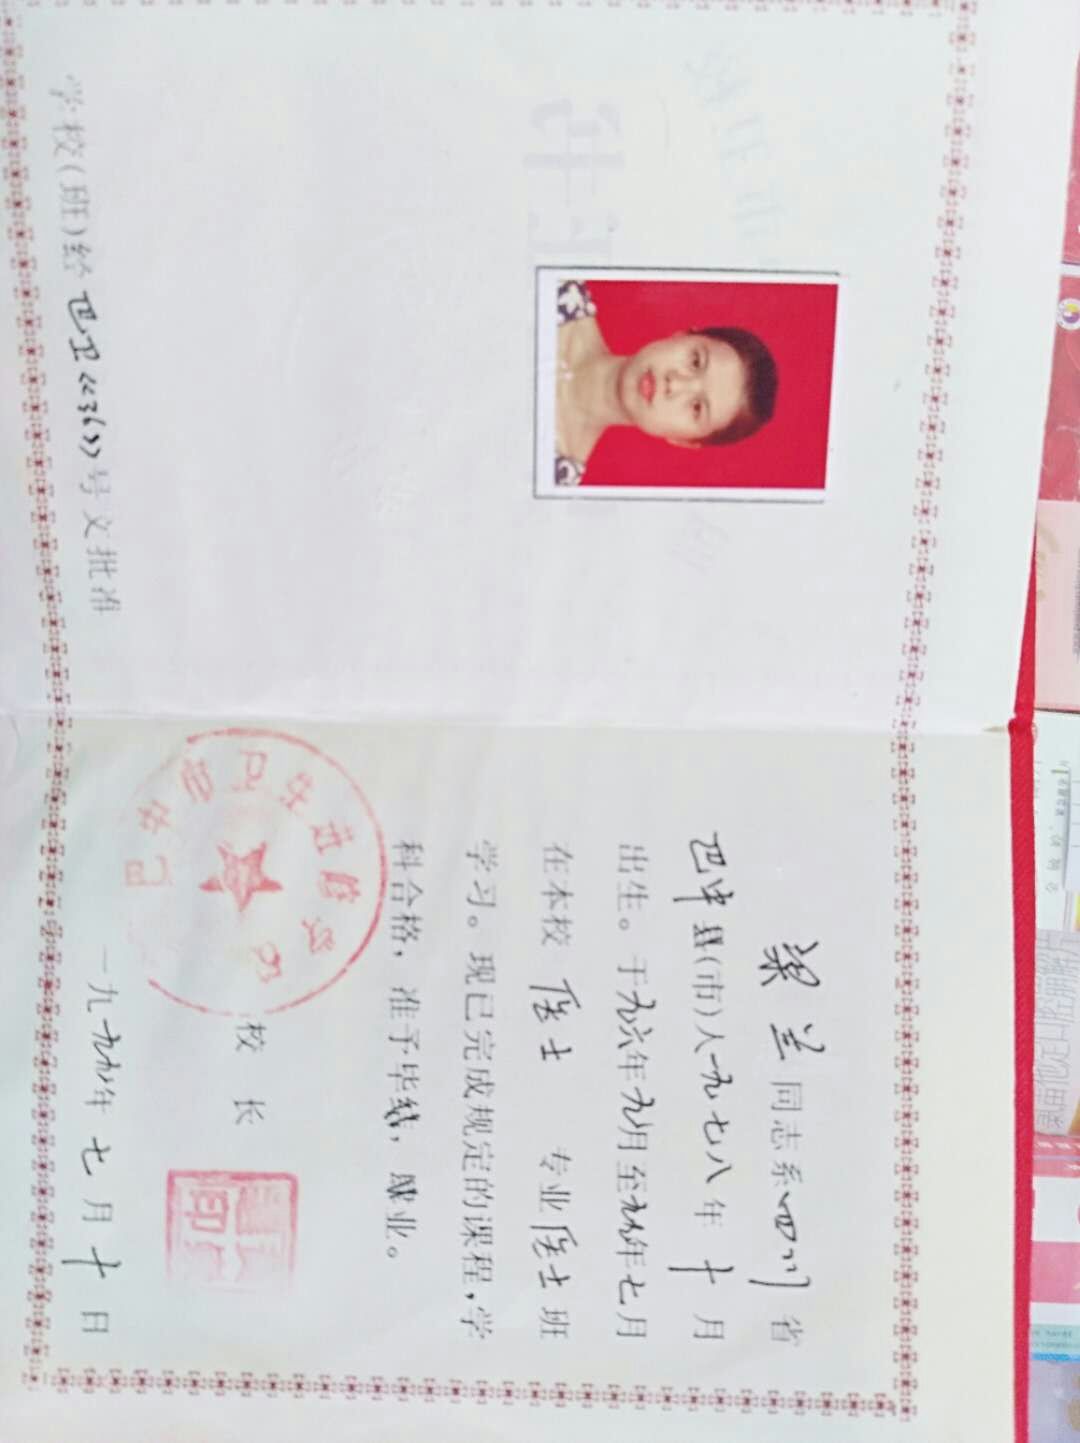 学校(班)经巴卫《36》号文批准
梁兰同志系四川省
巴中县(市)人一九七八年十月
出生。于九六年九月至九九年七月
在本校 医士 专业医士班
学习。现已完成规定的课程,学
科合格,准予毕业。
校 长
一九九九年七月十日
巴中市卫生进修校
印